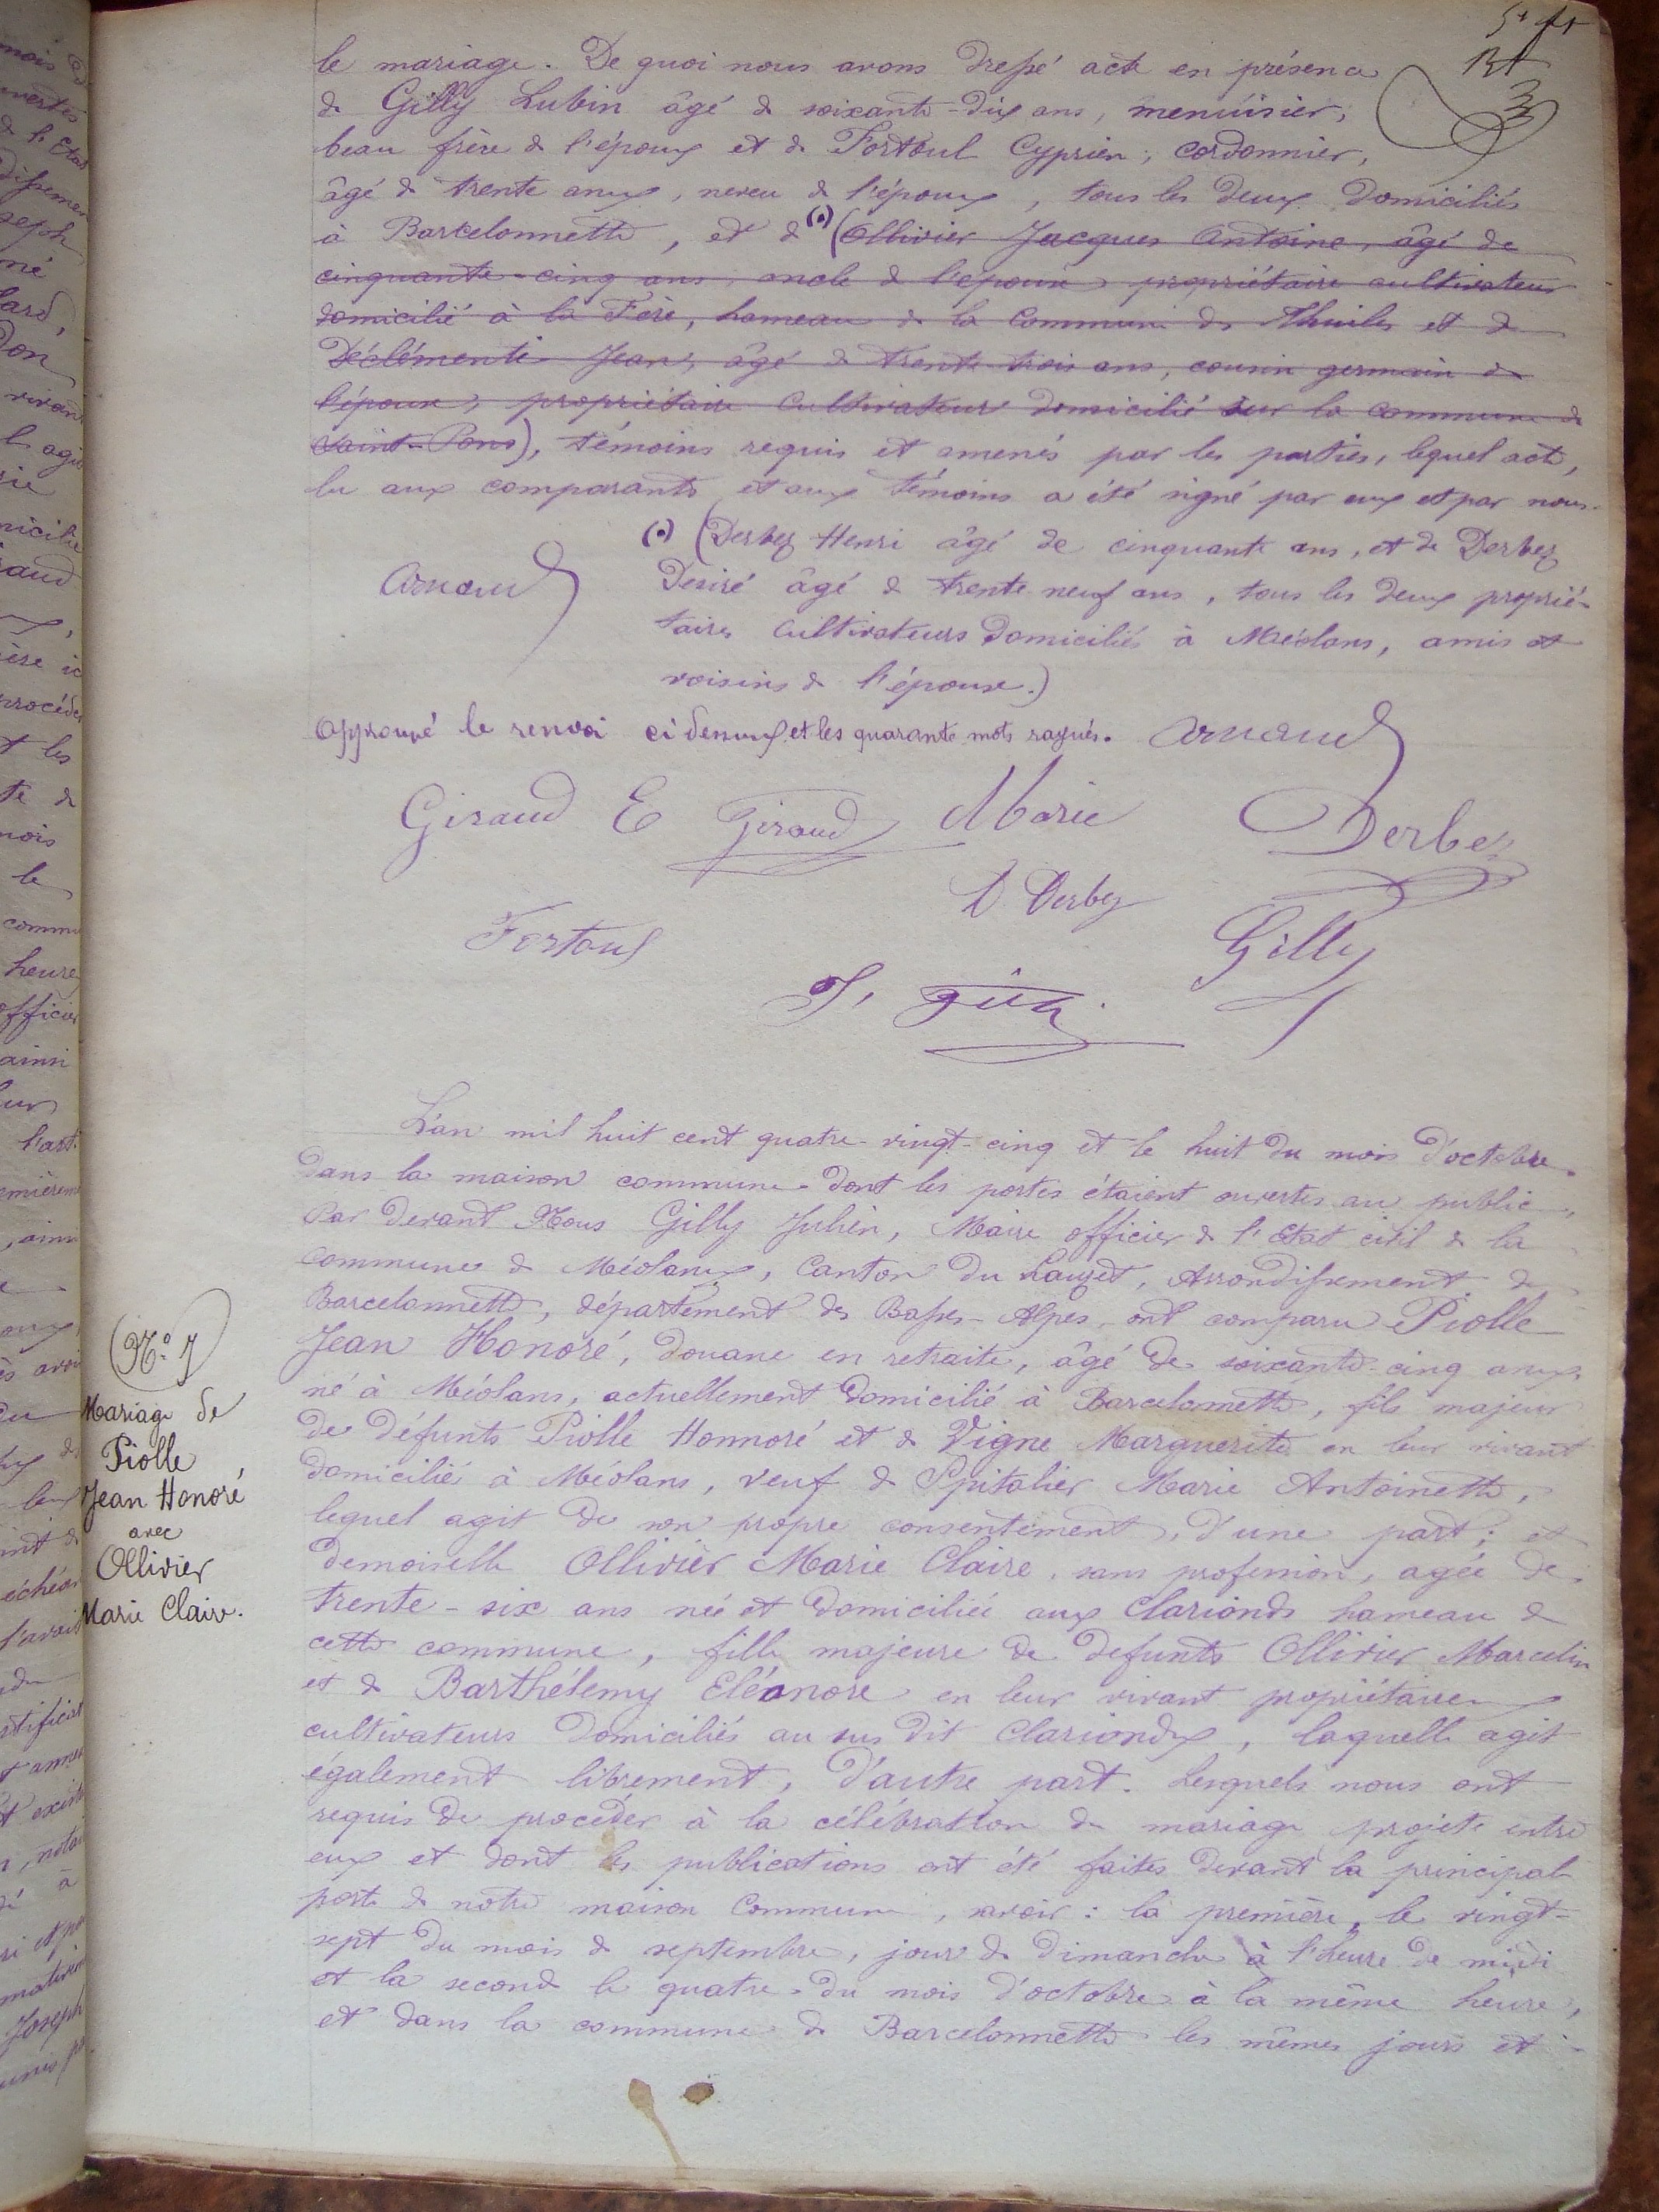 le mariage. De quoi nous avons dressé acte en présence
de Gilly Lubin âgé de soixante-dix ans, menuisier,
beau frère de l'époux et de Fortoul Cyprien, cordonnier,
âgé de trente ans, neveu de l'époux, tous les deux domiciliés
à Barcelonnette, et de (•) (Ollivier Jacques Antoine, âgé de
cinquante-cinq ans, oncle de l'épouse propriétaire cultivateur
domicilié à la Fère, hameau de la Commune de Thuiles et de
Déclémenti Jean, âgé de trente-trois ans, cousin germain de
l'épouse, propriétaire Cultivateur domicilié sur la commune de
Saint-Pons), témoins requis et amenés par les parties, lequel acte,
lu aux comparants et aux témoins a été signé par eux et par nous.
(•) (Derbez Henri âgé de cinquante ans, et de Derbez
Arnaud
Désiré âgé de trente neuf ans, tous les deux proprié-
taires Cultivateurs domiciliés à Méolans, amis et
voisins de l'épouse.)
Approuvé le renvoi ci dessus et les quarante mots rayés. Arnaud
Giraud E Giraud Marie Derbez
D Derbez
Fortoul Gilly
L'an mil huit cent quatre-vingt-cinq et le huit du mois d'octobre.
Dans la maison commune dont les portes étaient ouvertes au public,
Par devant Nous Gilly Julien, Maire officier de l'Etat civil de la
commune de Méolans, Canton du Lauzet, Arrondissement de
Barcelonnette, département des Basses-Alpes, ont comparu Piolle
Jean Honoré, douane en retraite, âgé de soixante-cinq ans,
né à Méolans, actuellement domicilié à Barcelonnette, fils majeur
de défunts Piolle Honnoré et de Vigne Marguerite en leur vivant
domicilié à Méolans, veuf de Spitalier Marie Antoinette,
lequel agit de son propre consentement, d'une part; et
demoiselle Ollivier Marie Claire, sans profession, agée de
trente-six ans née et domiciliée aux Clarionds hameau de
cette commune, fille majeure de defunts Ollivier Marcelin
et de Barthélemy Eléonore en leur vivant propriétaires
cultivateurs domiciliés au sus dit Clarionds, laquelle agit
également librement, d'autre part. Lesquels nous ont
requis de procéder à la célébration du mariage projeté entre
eux et dont les publications ont été faites devant la principale
porte de notre maison Commune, savoir: la première, le vingt-
sept du mois de septembre, jour de Dimanche à l'heure de midi
et la seconde le quatre du mois d'octobre à la même heure,
et dans la commune de Barcelonnette les mêmes jours et
N.º 7
Mariage de
Piolle
Jean Honoré
avec
Ollivier
Marie Claire.